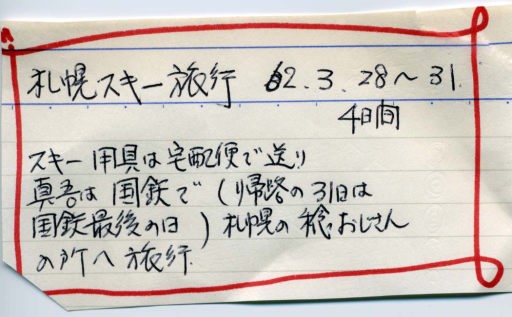 札幌スキー旅行 62.3.28〜31.
4日間
スキー用具は宅配便で送り
真吾は国鉄で(帰路の31日は
国鉄最後の日)札幌の稔おじさん
の所へ旅行